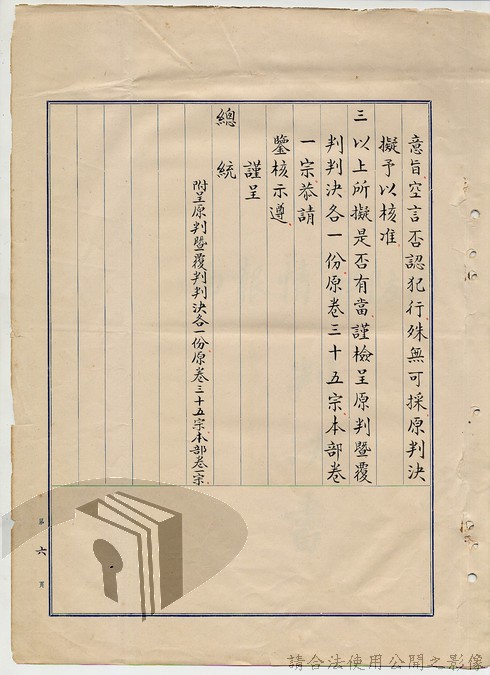 意旨空言否認犯行殊無可採原判決
擬予以核准
三以上所擬是否有當謹檢呈原判暨覆
判判決各一份原卷三十五宗本部卷
一宗恭請
鑒核示遵
謹呈
總統
附呈原判暨覆判判決各一份原卷三十五宗本部卷一宗
第六頁
請合法使用公開之影像